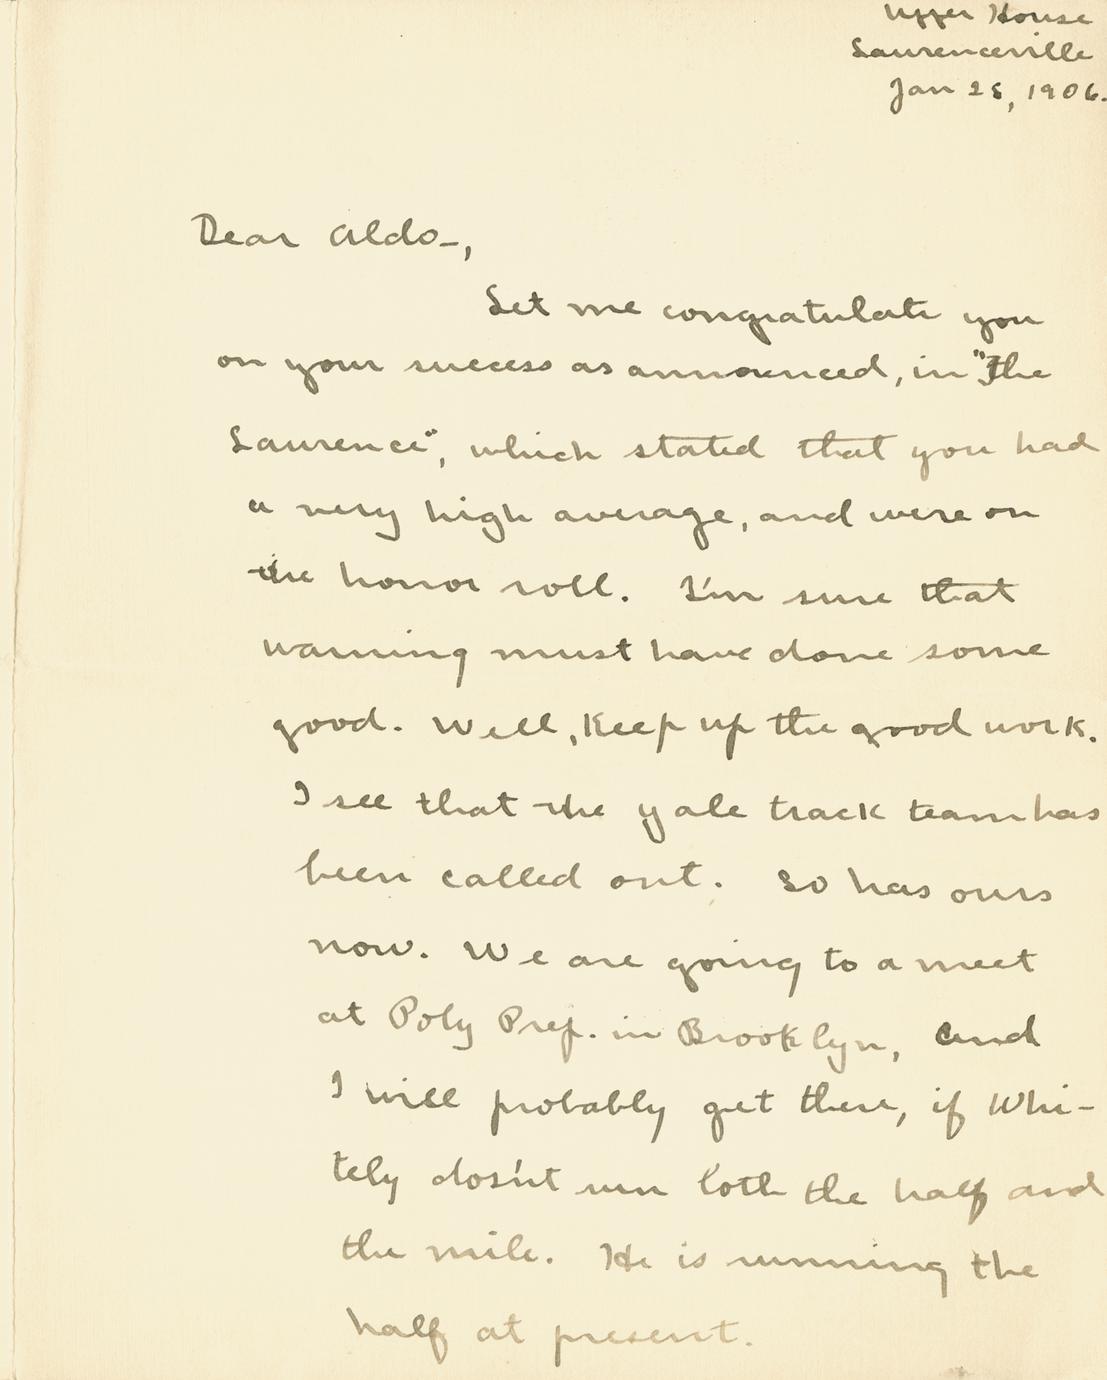 Upper House
Lawrenceville
Jan 25, 1906.
Dear Aldo-,
Let me congratulate you
on your success as announced, in "The
Lawrence", which stated that you had
a very high average, and were on
the honor roll. I'm sure that
warning must have done some
good. Well, Keep up the good work.
I see that the Yale track team has
been called out. So has ours
now. We are going to a meet
at Poly Prep. in Brooklyn, and
I will probably get there, if Whi-
tely dosn't run both the half and
the mile. He is running the
half at present.